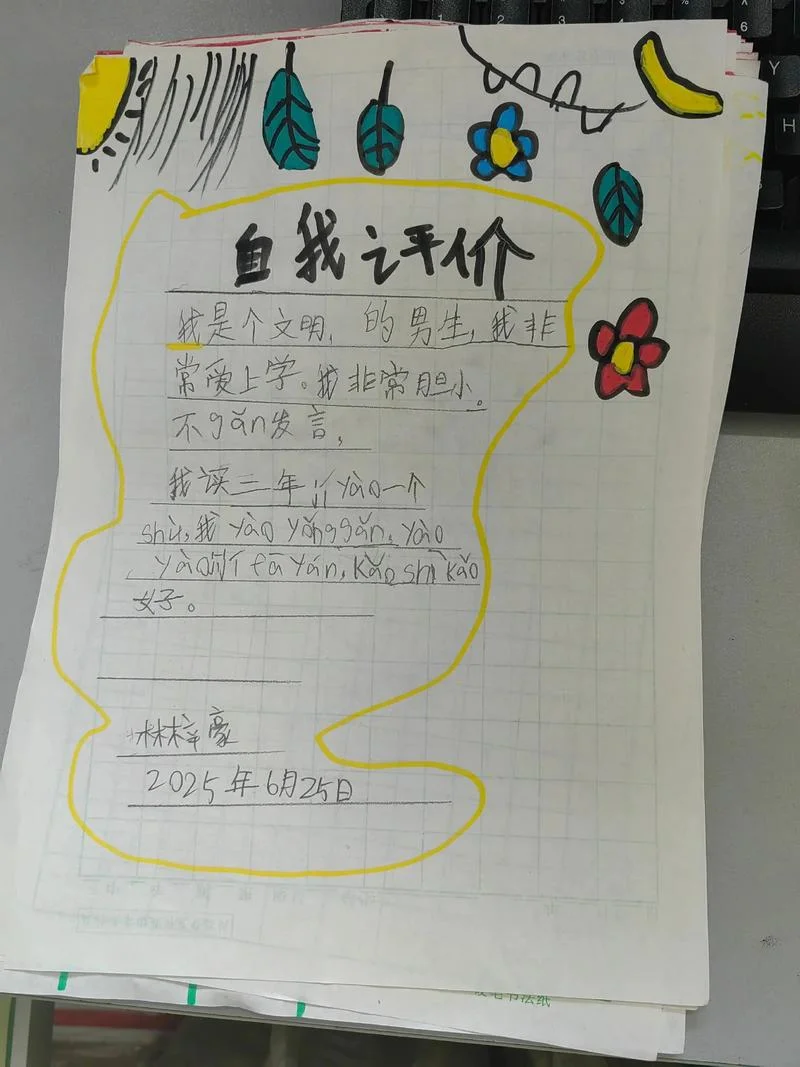 自我评价
我是个文明,的男生,我非
常爱上学。我非常胆小。
不gǎn发言,
我读三年yào一个
shù,我yào yǒnggǎn,yào
yào fā yán,kǎo shì kǎo
好。
林梓豪
2025年6月25日